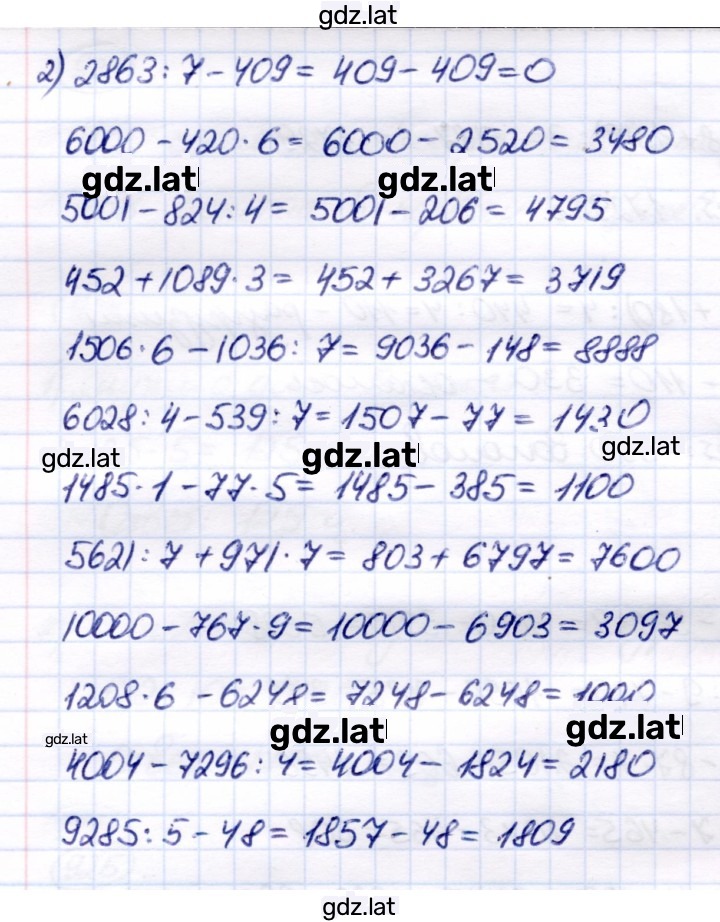 gdz.lat
2) 2863 : 7 - 409 = 409 - 409 = 0
6000 - 420 · 6 = 6000 - 2520 = 3480
gdz.lat gdz.lat
5001 - 824 : 4 = 5001 - 206 = 4795
452 + 1089 · 3 = 452 + 3267 = 3719
1506 · 6 - 1036 : 7 = 9036 - 148 = 8888
6028 : 4 - 539 : 7 = 1507 - 77 = 1430
gdz.lat gdz.lat gdz.lat
1485 · 1 - 77 · 5 = 1485 - 385 = 1100
5621 : 7 + 971 · 7 = 803 + 6797 = 7600
10000 - 767 · 9 = 10000 - 6903 = 3097
1208 · 6 - 6248 = 7248 - 6248 = 1000
gdz.lat gdz.lat gdz.lat
4004 - 7296 : 4 = 4004 - 1824 = 2180
9285 : 5 - 48 = 1857 - 48 = 1809
gdz.lat